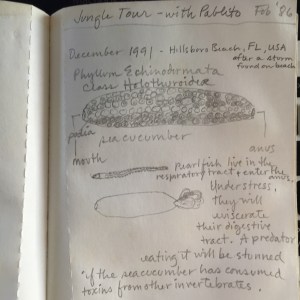 Jungle Tour - with Pablito Feb '86
December 1991 - Hillsboro Beach, FL, USA
after a storm
found on beach
Phyllum Echinodermata
Class Holothuroidea
podia
sea cucumber
anus
mouth
Pearlfish live in the
respiratory tract & enter the
anus.
Under stress,
they will
eviscerate
their digestive
tract. A predator
eating it will be stunned
if the sea cucumber has consumed
toxins from other invertebrates.